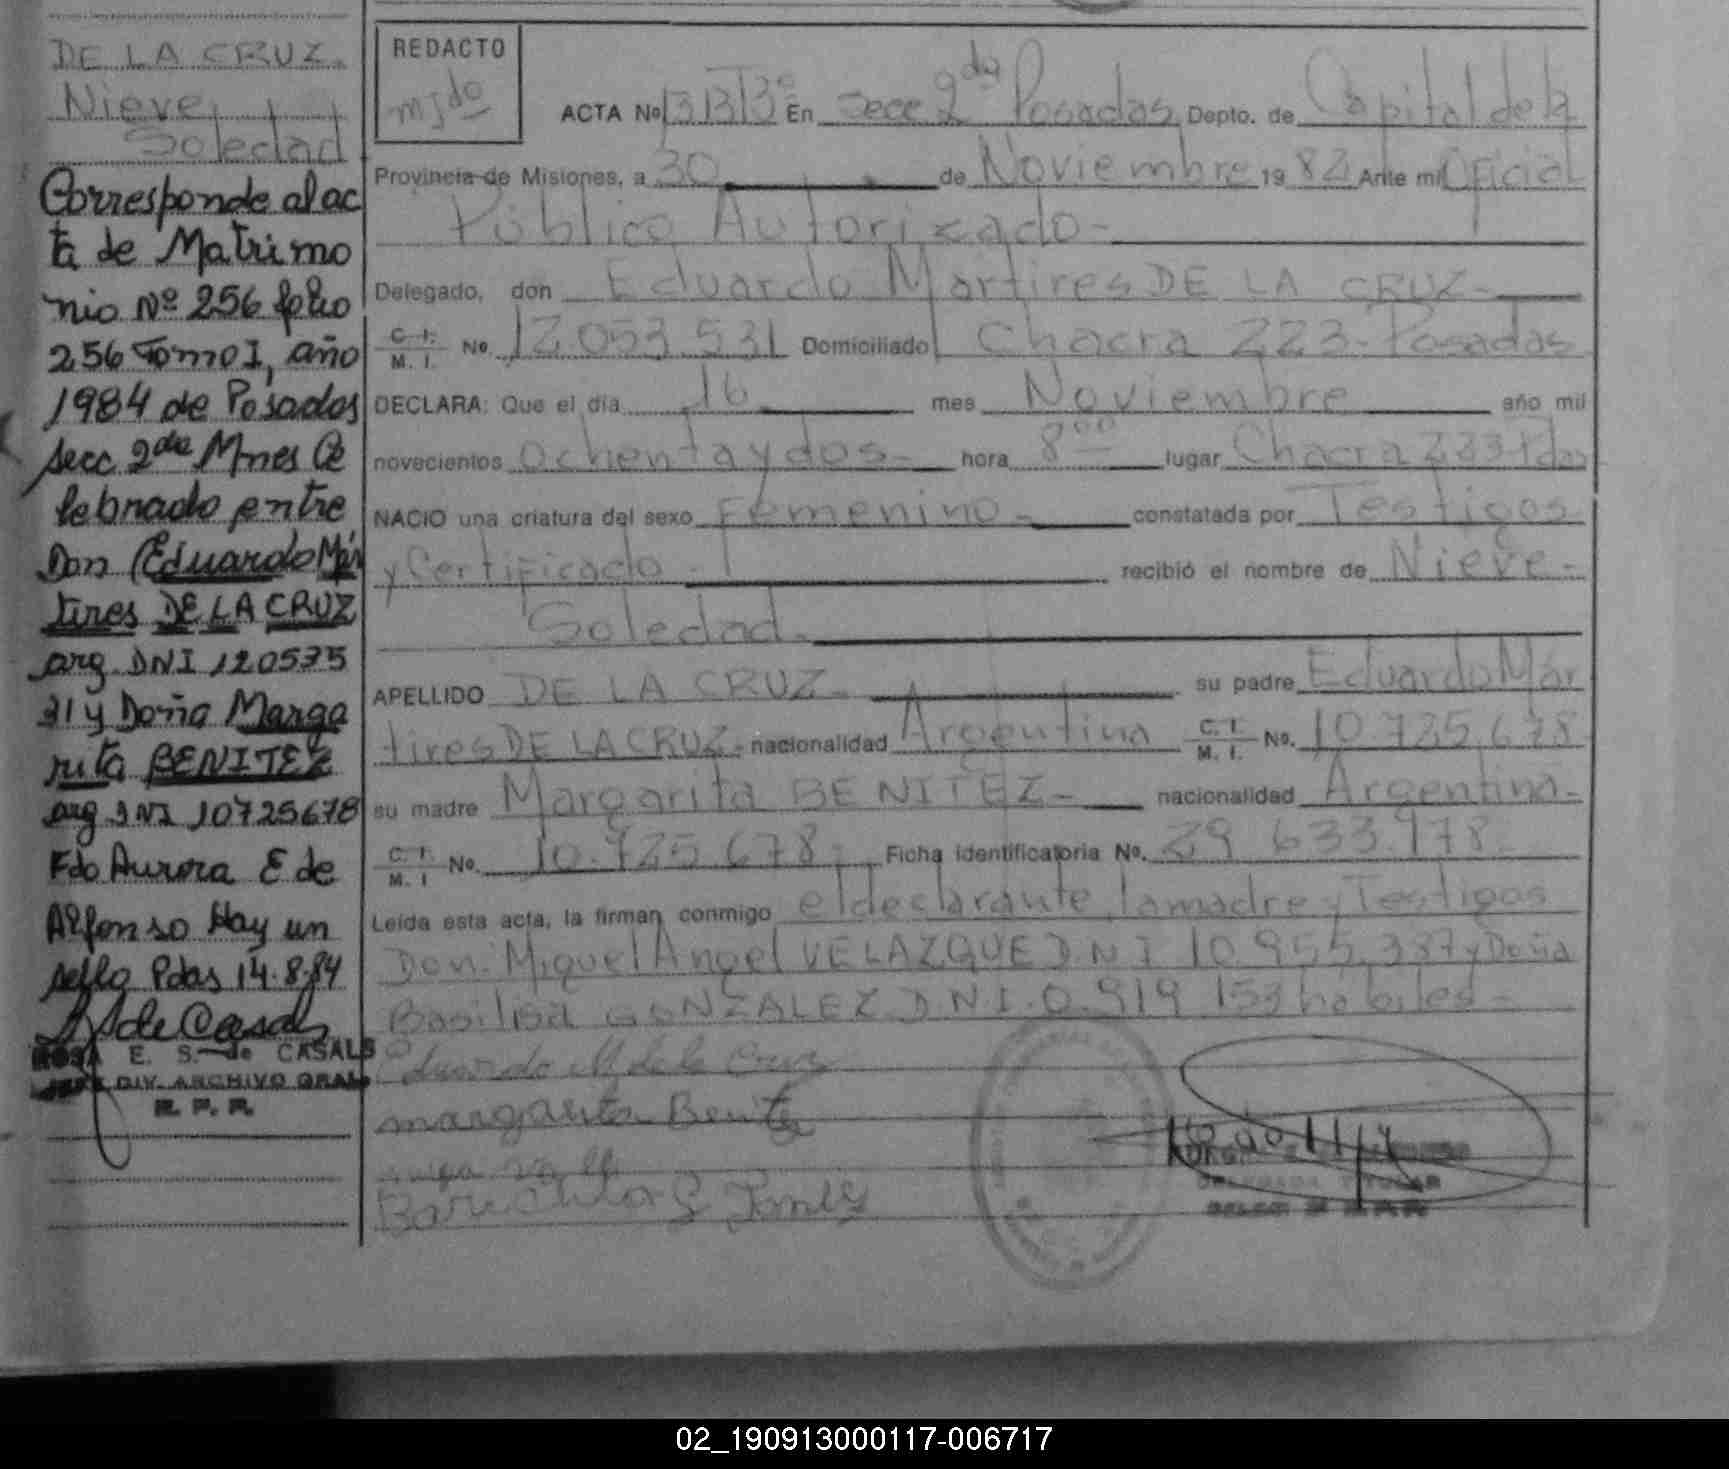 DE LA CRUZ.
Nieve
Soledad
Corresponde al ac
ta de Matrimo
nio Nº 256 folio
256 Tomo I, año
1984 de Posadas
secc 2da Mnes Ce
lebrado entre
Don Eduardo Már
tires DE LA CRUZ
arg DNI 120535
31 y Doña Marga
rita BENITEZ
arg DNI 10725678
Fdo Aurora E de
Alfonso Hay un
sello Pdas 14.8.84
ROSA E. S. de CASALS
JEFE DIV. ARCHIVO GRAL
R. P. P.
REDACTO
mjdo
ACTA Nº 3313º En Secc 2da Posadas Depto. de Capital de la
Provincia de Misiones, a 30 de Noviembre 1982 Ante mi Oficial
Público Autorizado-
Delegado, don Eduardo Martires DE LA CRUZ-
C. I. M. I. No. 12.053.531 Domiciliado Chacra 223-Posadas
DECLARA: Que el día 16 mes Noviembre año mil
novecientos ochenta y dos- hora 8 00 lugar Chacra 223-Pdas
NACIO una criatura del sexo Femenino- constatada por Testigos
y Certificado- recibió el nombre de Nieve-
Soledad-
APELLIDO DE LA CRUZ- su padre Eduardo Már
tires DE LA CRUZ- nacionalidad Argentina C. I. M. I. No. 10.725.678
su madre Margarita BENITEZ- nacionalidad Argentina-
C. I. M. I No. 10.725.678- Ficha identificatoria No. 29.633.978-
Leída esta acta, la firman conmigo el declarante, la madre y Testigos
Don: Miguel Angel VELAZQUE D.N.I 10.955.387 y Doña
Basilisa GONZALEZ D.N.I. 0.919.153 habiles-
Eduardo M de la Cruz
margarita Benitez
DELEGADA TITULAR
02_190913000117-006717